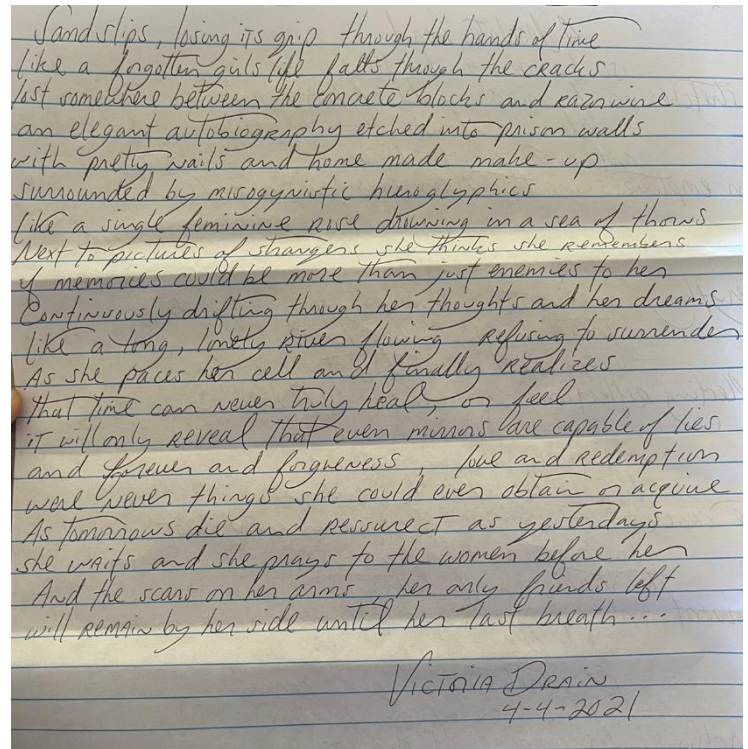 Sandslips, losing its grip through the hands of time
like a forgotten girls life falls through the cracks
lost somewhere between the concrete blocks and razorwire
an elegant autobiography etched into prison walls
with pretty nails and home made make-up
surrounded by misogynistic hieroglyphics
like a single feminine rose drowning in a sea of thorns
Next to pictures of strangers she thinks she remembers
if memories could be more than just enemies to her
Continuously drifting through her thoughts and her dreams
like a long, lonely river flowing refusing to surrender
As she paces her cell and finally realizes
that time can never truly heal, or feel
iT will only reveal that even mirrors are capable of lies
and forever and forgiveness, love and redemption
were never things she could ever obtain or acquire
As tomorrows die and ressurect as yesterdays
she waits and she prays to the women before her
And the scars on her arms, her only friends left
will remain by her side until her last breath...
Victoria Drain
4-4-2021